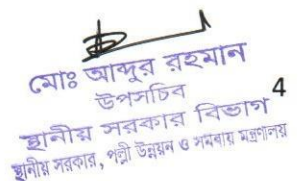 মোঃ আব্দুর রহমান
উপসচিব
4
স্থানীয় সরকার বিভাগ
স্থানীয় সরকার, পল্লী উন্নয়ন ও সমবায় মন্ত্রণালয়